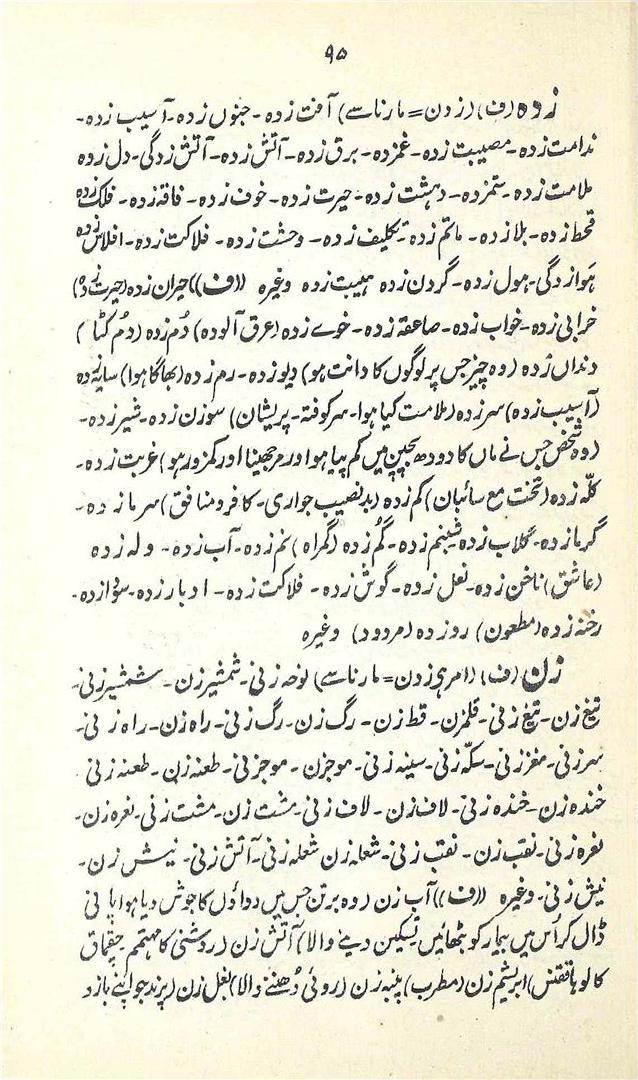 ۹۵
زدہ (ف) (زدن = مارنا سے) آفت زدہ - جنوں زدہ - آسیب زدہ -
ندامت زدہ - مصیبت زدہ - غمزدہ - برق زدہ - آتش زدہ - آتش زدگی - دل زدہ
ملامت زدہ - ستمزدہ - دہشت زدہ - حیرت زدہ - خوف زدہ - فاقہ زدہ - فلک زدہ
قحط زدہ - بلا زدہ - ماتم زدہ - تکلیف زدہ - وحشت زدہ - فلاکت زدہ - افلاس زدہ
ہوا زدگی - ہول زدہ - گردن زدہ ہیبت زدہ وغیرہ ((ف)) حیران زدہ (حیرت زدہ)
خرابی زدہ - خواب زدہ - صاعقہ زدہ - خوے زدہ (عرق آلودہ) دُم زدہ (دُم کٹا)
دنداں زدہ (وہ چیز جس پر لوگوں کا دانت ہو) دیو زدہ - رم زدہ (بھاگا ہوا) سایہ زدہ
(آسیب زدہ) سرزدہ (ملامت کیا ہوا - سرکوفتہ - پریشان) سوزن زدہ - شیر زدہ -
(وہ شخص جس نے ماں کا دودھ بچپن میں کم پیا ہو اور مرجھینا اور کمزور ہو) غربت زدہ -
کلّہ زدہ (تخت مع سائبان) کم زدہ (بد نصیب جواری - کافر و منافق) سرما زدہ -
گرما زدہ - گلاب زدہ - شبنم زدہ - گُم زدہ (گمراہ) نم زدہ - آب زدہ - ولہ زدہ
(عاشق) ناخن زدہ - نعل زدہ - گوش زدہ - فلاکت زدہ - ادبار زدہ - سودا زدہ -
رخنہ زدہ (مطعون) روز دہ (مردود) وغیرہ
زن (ف) (امر ہی زدن = مارنا سے) نوحہ زنی - شمشیر زن - شمشیر زنی -
تیغ زن - تیغ زنی - قلمزن - قط زن - رگ زن - رگ زنی - راہ زن - راہ زنی -
سرزنی - مغز زنی - سکّہ زنی - سینہ زنی - موجزن - موجزنی - طعنہ زن - طعنہ زنی
خندہ زن - خندہ زنی - لاف زن - لاف زنی - مشت زن - مشت زنی - نعرہ زن -
نعرہ زنی - نقب زن - نقب زنی - شعلہ زن شعلہ زنی - آتش زنی - نیش زن -
نیش زنی - وغیرہ ((ف)) آب زن (وہ برتن جس میں دواؤں کا جوش دیا ہوا پانی
ڈال کر اُس میں بیمار کو بٹھائیں تسکین دینے والا) آتش زن (زردشتی کا مہتمم چقماق
کا لوہا ققنس) ابریشم زن (مطرب) پنبہ زن (روئی دُھننے والا) بغل زن (پرند جو اپنے بازو